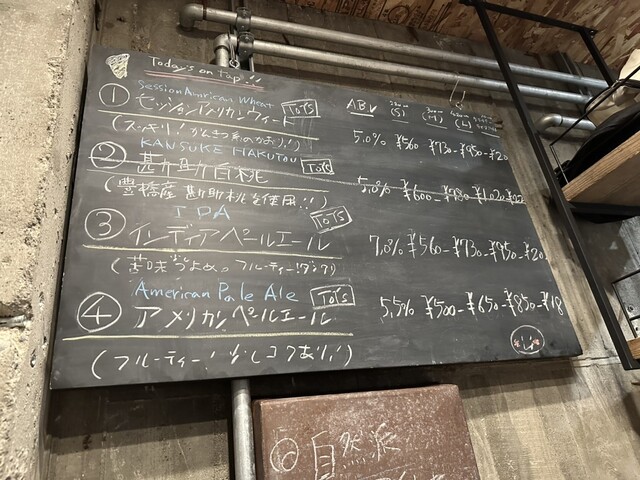 Today's on tap!!
Session American Wheat
① セッションアメリカンウィート TOT'S
(スッキリ!かんきつ系のかおり!)
ABV (S) (M) (L)
5.0% ¥560- ¥730- ¥950-
KANSUKE HAKUTOU
② 甚助白桃 TOT'S
(豊橋産 勘助桃を使用!!)
5.0% ¥600-
IPA TOT'S
③ インディアペールエール
(苦味つよめ。フルーティー!)
7.0% ¥560- ¥730- ¥950-
American Pale Ale TOT'S
④ アメリカンペールエール
(フルーティー!少しコクあり!)
5.5% ¥500- ¥650- ¥850-
⑥ 自然派